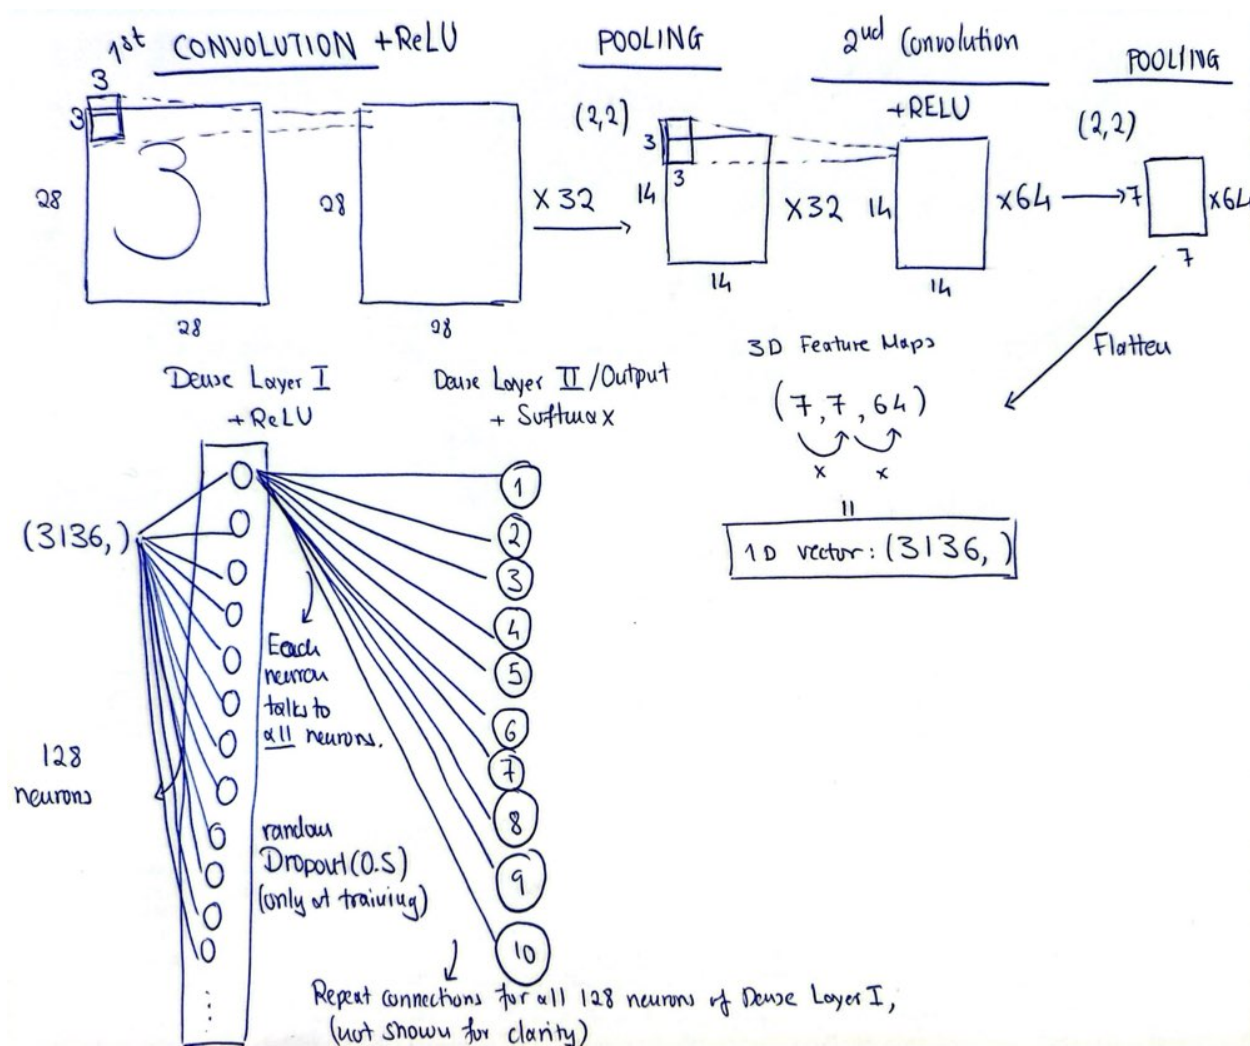 1st CONVOLUTION +ReLU
POOLING
2nd Convolution
+RELU
POOLING
3
3
3
28
28
28
28
x32
(2,2)
3
3
14
14
x32
14
14
x64
(2,2)
7
7
x64
Flatten
3D Feature Maps
(7,7,64)
x x
=
1D vector: (3136, )
Dense Layer I
+ReLU
Dense Layer II/Output
+ Softmax
(3136,)
128
neurons
Each
neuron
talks to
all neurons.
random
Dropout(0.5)
(only at training)
1
2
3
4
5
6
7
8
9
10
Repeat connections for all 128 neurons of Dense Layer I,
(not shown for clarity)